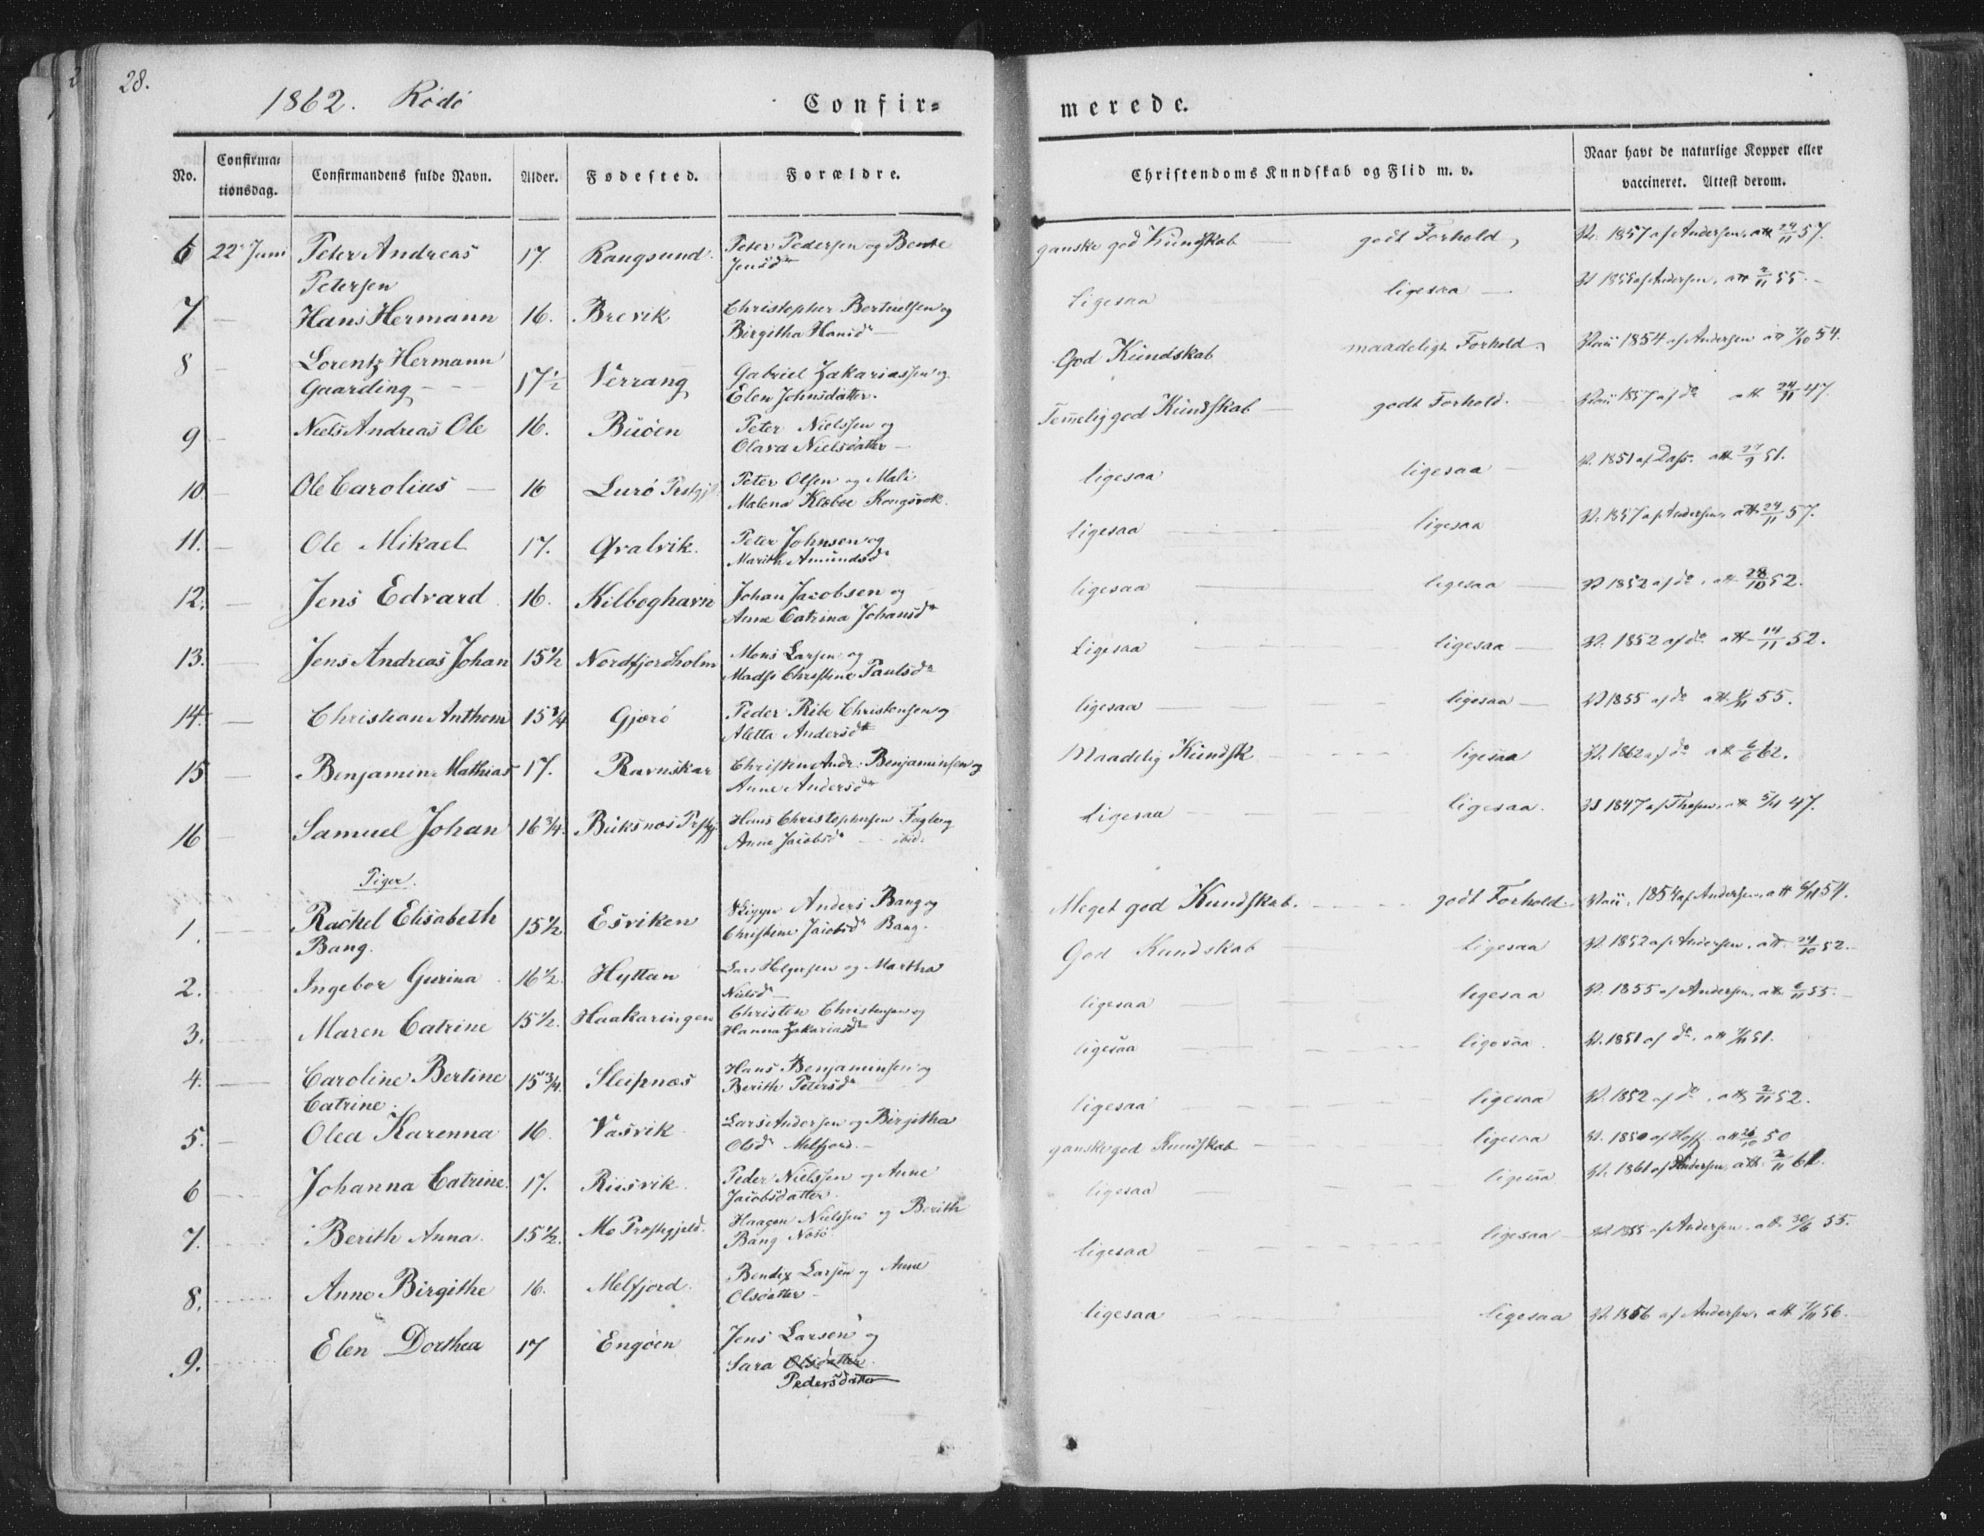 28.
1862. Rödö
Confir=
merede.
No.
Confirma=
tionsdag.
Confirmandens fulde Navn.
Alder.
Fødested.
Forældre.
Christendoms Kundskab og Flid m. v.
Naar havt de naturlige Kopper eller
vaccineret. Attest derom.
6 22 Juni Peter Andreas 17. Rangsund. Peter Pedersen og Bente ganske god Kundskab — godt Forhold, V. 1857 af Andersen, att 24/11 57.
Petersen Jensdr
7 — Hans Hermann 16. Brevik Christopher Bertuelsen og ligesaa ligesaa — V 1855 af Andersen, att 2/11 55.
Birgitha Hansdr
8 — Lorentz Hermann 17½ Verrang Gabriel Zakariassen og God Kundskab maadeligt Forhold, 1854 af Andersen att 54.
Gaarding — Elen Johnsdatter.
9 — Niels Andreas Ole 16. Buöen Peter Nielssen og Temelig god Kundskab — godt Forhold. 1857 af do att 24/11 47.
Olava Nielsdatter —
10 — Ole Carolius — 16 Lurö Prstgjl Peter Olsen og Mali ligesaa ligesaa — V. 1851 af Dass. att 27/9 51.
Malena Klæboe Kongsvik.
11. — Ole Mikael 17. Qvalvik. Peter Johnsen og ligesaa ligesaa V. 1857 af Andersen, att 24/11 57.
Marith Amundsdr
12. — Jens Edvard 16. Kilboghavn Johan Jacobsen og ligesaa ligesaa — V. 1852 af do, att 28/10 52.
Anne Catrina Johansdr
13. — Jens Andreas Johan 15½ Nordfjordholm Mons Larsen og Ligesaa ligesaa — V. 1852 af do att 14/11 52.
Madsi Christine Paulsdr
14. — Christian Anthom 15¾ Gjerö Peder Ribe Christensen og ligesaa — ligesaa — V 1855 af do att 55.
Aletta Andersdr
15 — Benjamin Mathias 17. Ravnskar Christen Andr: Benjaminsen og Maadelig Kundsk — ligesaa V. 1862 af do att 6/6 62.
Anne Andersdr
16 — Samuel Johan 16¾. Buksnæs Prstgj Hans Christophersen Fagle og Ligesaa — ligesaa. V 1847 af att 5/4 47.
Anne Jacobsdr — ibid.
Piger.
1. Rachel Elisabeth 15½ Esviken Skipper Anders Bang og Meget god Kundskab. godt Forhold. 1854 af Andersen, att 54.
Bang. Christine Jacobsdr Bang.
2. Ingebor Gurina 16½. Hyttan Lars Holgersen og Martha God Kundskab — ligesaa V. 1852 af Andersen, att 24/10 52.
Nielsd —
3. Maren Catrine 15½. Haakaringen Christen Christensen og ligesaa ligesaa V. 1855 af Andersen, att 6/11 55.
Hanna Zakariasdr
4. — Caroline Bertine 15¾. Sleipnæs Hans Benjaminsen og ligesaa ligesaa. V. 1851 af do. att 51.
Catrine. Berith Petersdr
5. — Olea Karenna 16. Vasvik Lars Andersen og Birgitha ligesaa ligesaa V. 1852 af do. att 2/11 52.
Olsdr Melfjord. —
6 Johanna Catrine. 17. Riisvik. Peder Nielssen og Anne ganske god Kundskab — ligesaa V. 1850 af Hoff, att 26/10 50
Jacobsdatter.
7. Berith Anna. 15½. Mo Præstegjeld. Haagen Nielssen og Berith ligesaa ligesaa V. 1861 af Andersen, att 2/11 61.
Bang Nösö
8. Anne Birgithe 16. Melfjord. Bendix Larsen og Anne ligesaa ligesaa V. 1855 af Andersen, att 30/6 55.
Olsdatter —
9. Elen Dorthea 17 Engöen Jens Larsen og ligesaa ligesaa V. 1856 af Andersen, att 56.
Sara Olsdatter
Pedersdatter